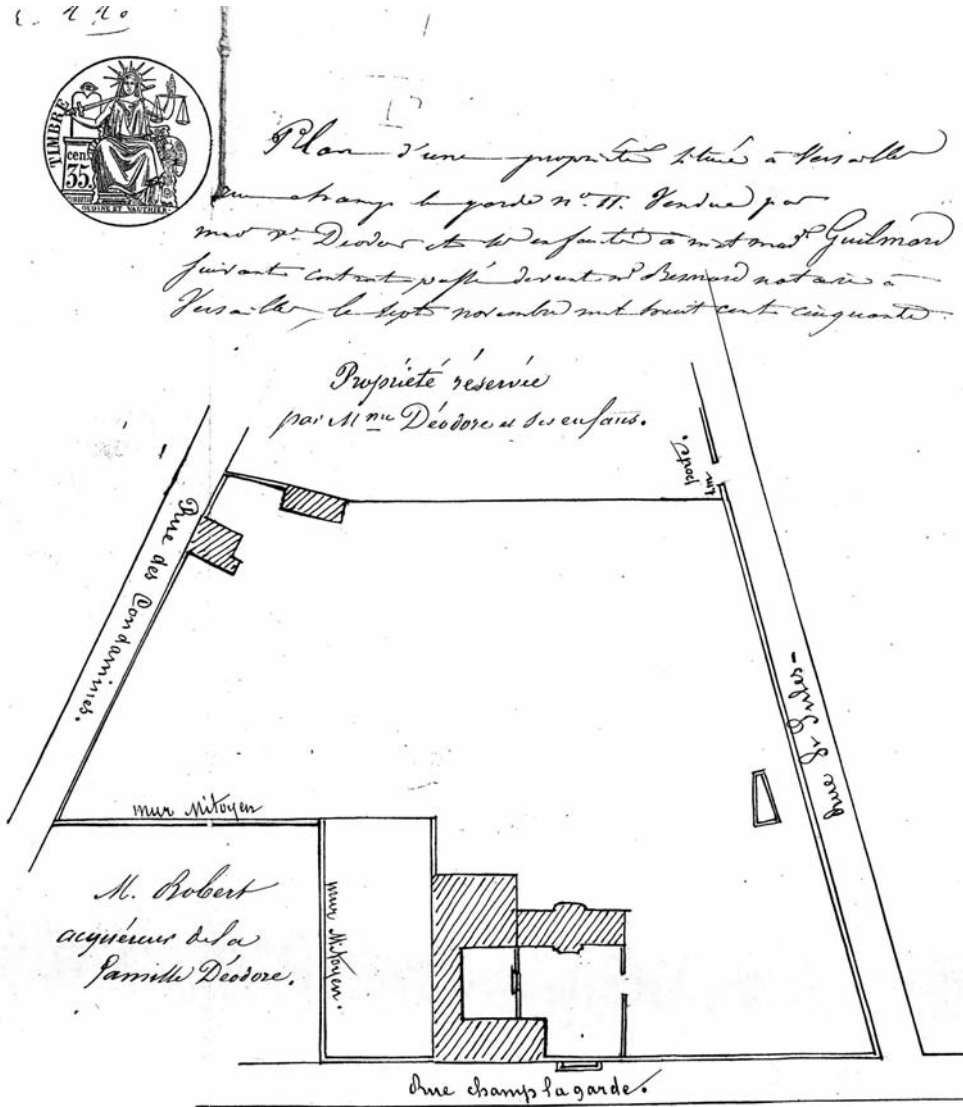 TIMBRE
cen.
35.
OUDINE ET VAUTHIER
Plan d'une propriété située à Versailles
rue champ la garde n° 11. Vendue par
Deodor et enfants à m et mad^e Guilmard
suivant contrat passé devant m^e Besnard notaire à
Versailles, le sept novembre mil huit cent cinquante.
Propriété réservée
par M^me Déodore et ses enfans.
porte.
Rue des Condamines.
Rue St Jules
mur Mitoyen
mur Mitoyen.
M. Robert
acquéreur de la
famille Déodore.
Rue champ la garde.